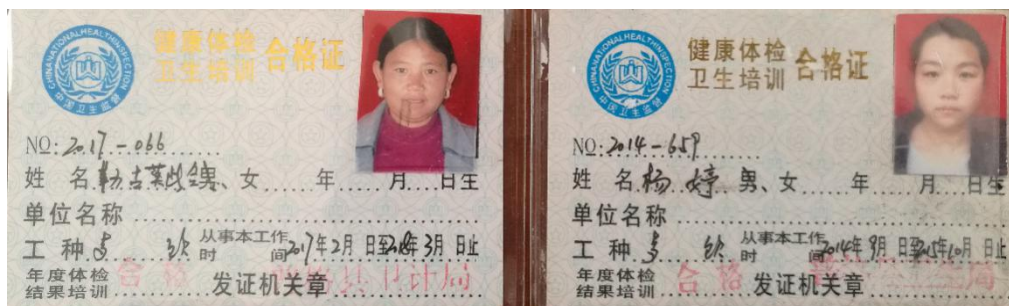 CHINANATIONALHEALTHINSPECTION
中国卫生监督
健康体检
卫生培训 合格证
NO:2017-066
姓 名 男、女 年 月 日生
单位名称
工 种 从事本工作时间2017年2月 日至2018年3月 日止
年度体检结果培训 合格 发证机关章 县卫计局
CHINANATIONALHEALTHINSPECTION
中国卫生监督
健康体检
卫生培训 合格证
NO:2014-659
姓 名 杨婷 男、女 年 月 日生
单位名称
工 种 从事本工作时间2014年9月 日至2015年10月 日止
年度体检结果培训 合格 发证机关章